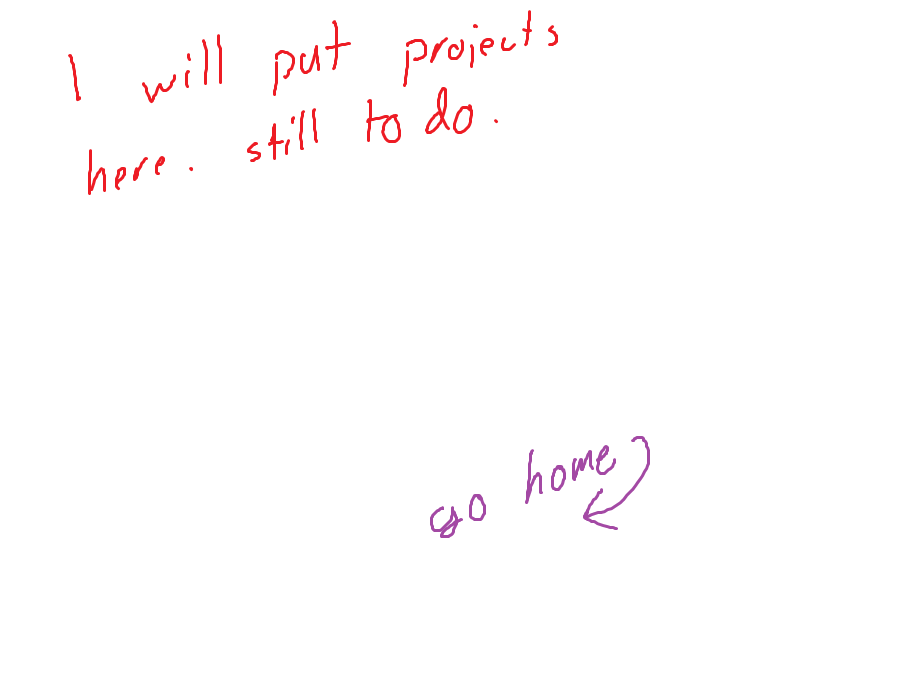 I will put projects
here. still to do.
go home